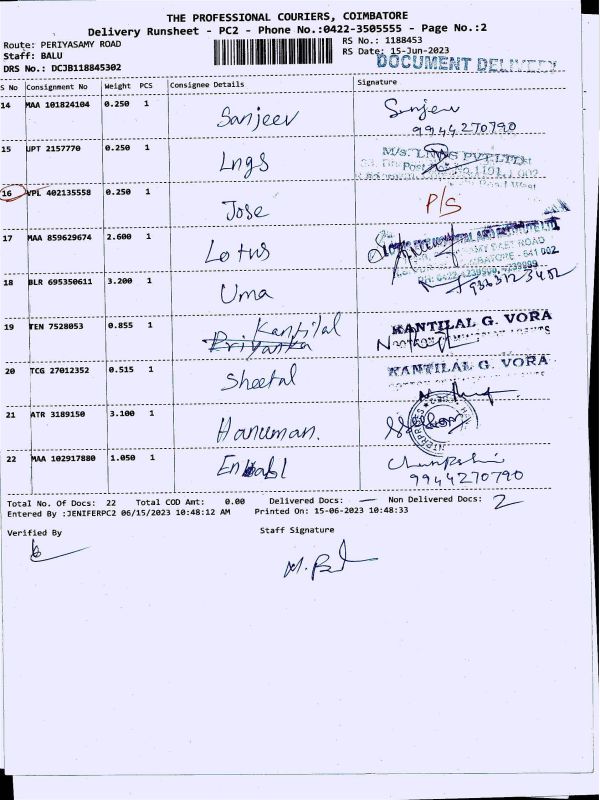 THE PROFESSIONAL COURIERS, COIMBATORE
Delivery Runsheet - PC2 - Phone No.:0422-3505555 - Page No.:2
Route: PERIYASAMY ROAD
RS No.: 1188453
Staff: BALU
RS Date: 15-Jun-2023
DRS No.: DCJB118845302
DOCUMENT DELIVERY
S No Consignment No Weight PCS Consignee Details Signature
14 MAA 101824104 0.250 1 Sanjeev
9944270790
15 UPT 2157770 0.250 1 Lngs M/s. LNGS PVT LTD
16 VPL 402135558 0.250 1 Jose P/S
17 MAA 859629674 2.600 1 Lotus
EAST ROAD
641 002
18 BLR 695350611 3.200 1 Uma
19 TEN 7528053 0.855 1 Kantilal KANTILAL G. VORA
Priyanka
20 TCG 27012352 0.515 1 Sheetal KANTILAL G. VORA
21 ATR 3189150 3.100 1 Hanuman.
22 MAA 102917880 1.050 1
9944270790
Total No. Of Docs: 22 Total COD Amt: 0.00 Delivered Docs: — Non Delivered Docs: 2
Entered By :JENIFERPC2 06/15/2023 10:48:12 AM Printed On: 15-06-2023 10:48:33
Verified By Staff Signature